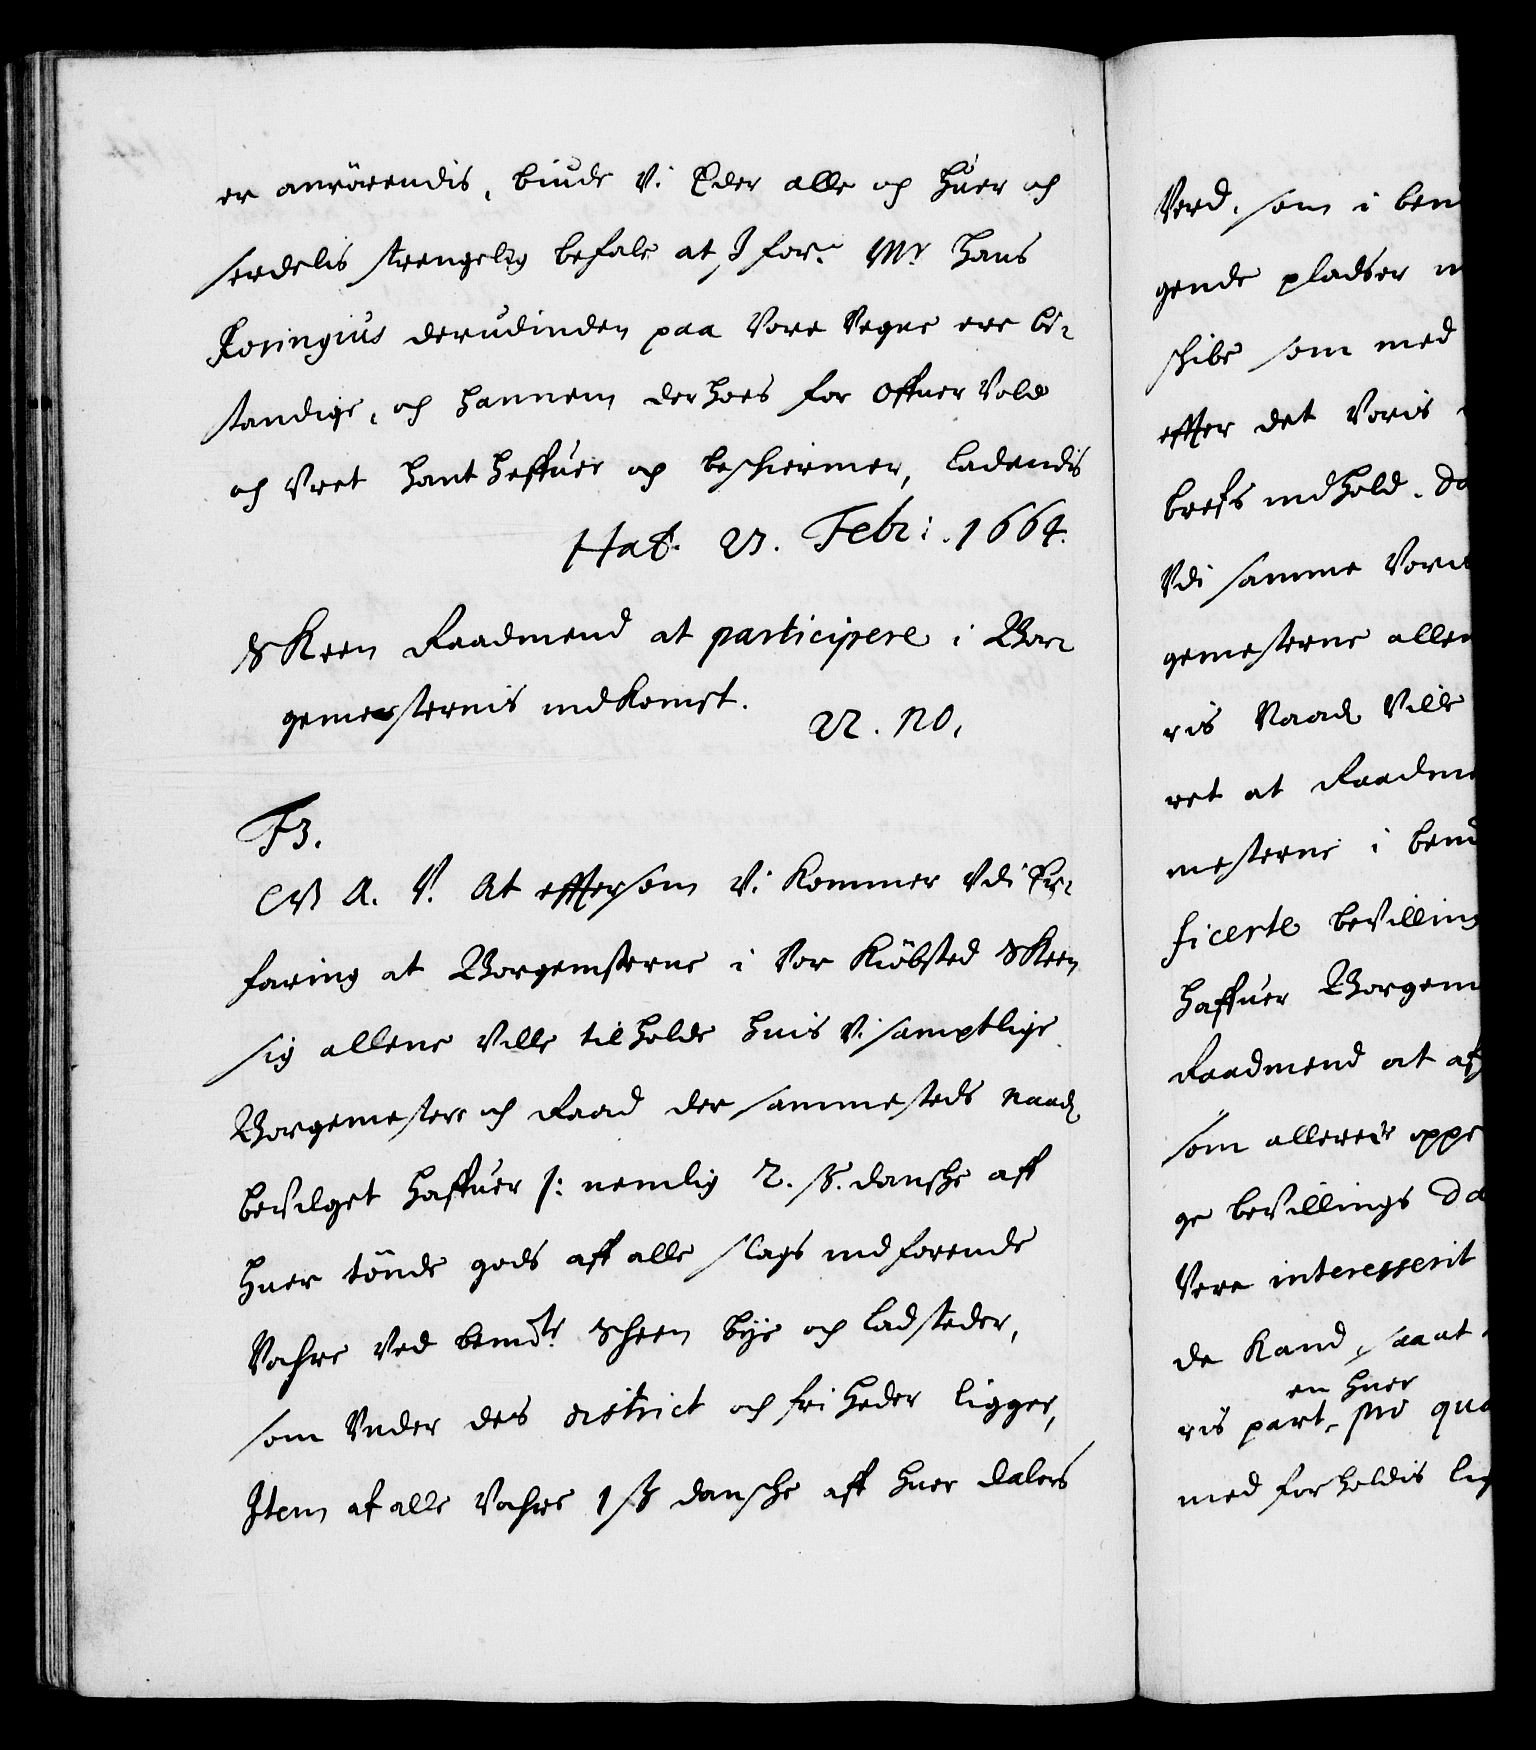 er anrörendis, biude Vi Eder alle og huer og
serdelis strengelig befale at I for: Mr. Hans
Rosingius derudinden paa Vore Vegne ere be-
standige, og hannem der hoes for offuer Vold
og Vret hantheffuer og beschiermer, ladendis
Haf. 23. Febr: 1664.
Skeen Raadmend at participere i Bor-
gemesternis indkomst.
22. no.
F3.
G A. V. At effter som Vi kommer Vdi Er-
faring at Borgemsterne i Vor Kiöbsted Skeen
sig allene Ville tilholde huis Vi samptlige
Borgemestere og Raad der sammesteds naad
bevilget haffuer /: nemlig 2. ß. danshe aff
huer tönde gods aff alle slags indforende
Vahre Ved bemdte Scheen bye og ladsteder,
som Vnder des district og friheder ligger,
Item af alle Vahre 1 ß danshe aff huer dalers
Verd, som i ben
gende pladser
shibe som med
effter det Voris
brefs indhold. Da
Vdi samme Voris
gemesterne allen
ris Naad Ville
ret at Raadme
mesterne i bem
ficerte bevilling
haffuer Borgem
Raadmend at af
som allerede oppe
ge bevillings Da
Vere interesserit
de Kand, saa at
en huer
ris part, pro quo
med forholdis lig